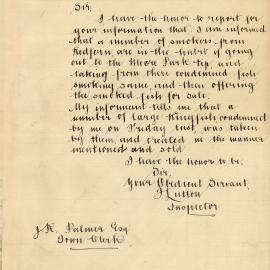 Sir,
I have the honor to report for
your information that I am informed
that a number of smokers from
Redfern, are in the habit of going
out to the Moore Park tip, and
taking from there condemned fish
smoking same, and then offering
the smoked fish for sale.
My informant tells me that a
number of large Kingfish condemned
by me on Friday last, was taken
by them, and treated in the manner
mentioned and sold
I have the honor to be,
Sir,
Your Obedient Servant,
Hutton
Inspector
J.R. Palmer Esq
Town Clerk